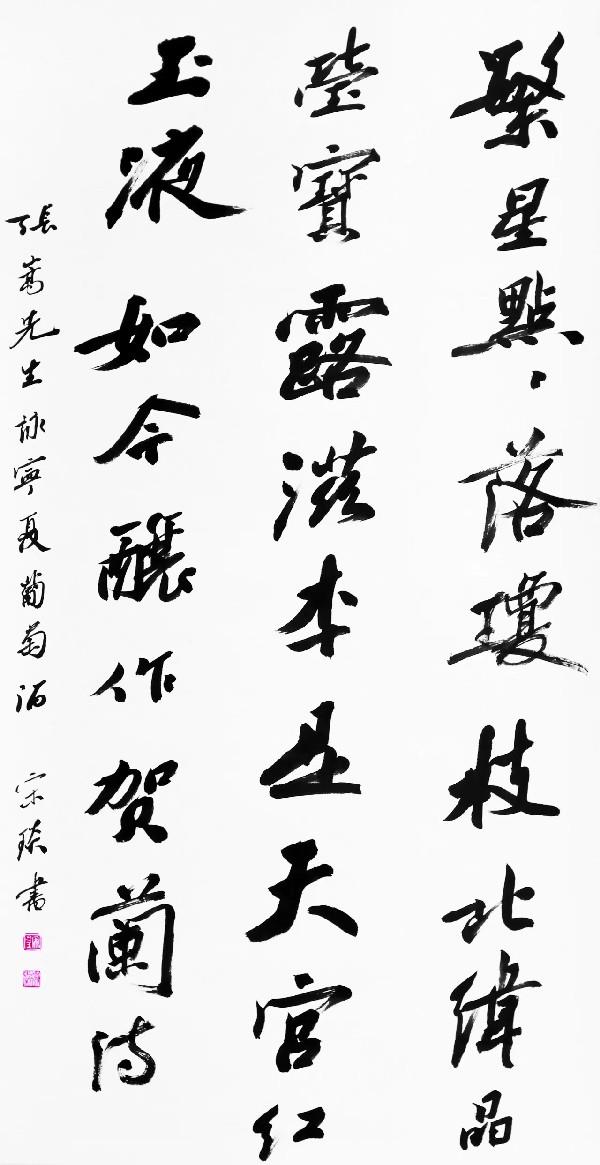 繁星點點落瓊枝北緯晶
瑩寶露滋本是天宮紅
玉液如今釀作賀蘭詩
張嵩先生詠寧夏葡萄酒 宋 書